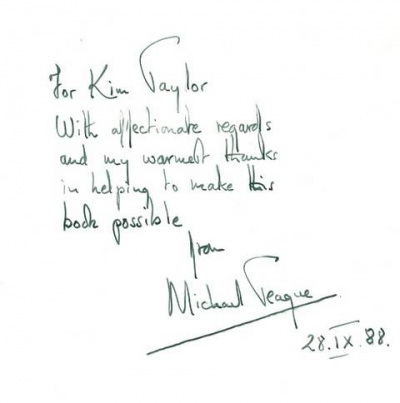 For Kim Taylor
With affectionate regards
and my warmest thanks
in helping to make this
book possible
from
Michael Teague
28.IX.88.